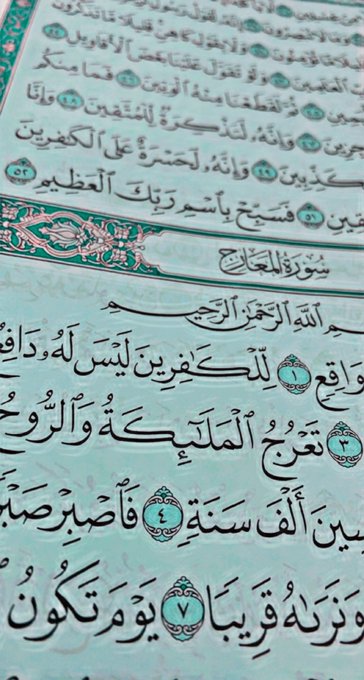 وَلَا بِقَوْلِ كَاهِنٍ قَلِيلًا مَّا تَذَكَّرُونَ ٤٢
وَلَوْ تَقَوَّلَ عَلَيْنَا بَعْضَ ٱلْأَقَاوِيلِ ٤٤
ثُمَّ لَقَطَعْنَا مِنْهُ ٱلْوَتِينَ ٤٦ فَمَا مِنكُم
جِزِينَ ٤٧ وَإِنَّهُۥ لَتَذْكِرَةٌ لِّلْمُتَّقِينَ ٤٨ وَإِنَّا
كَذِّبِينَ ٤٩ وَإِنَّهُۥ لَحَسْرَةٌ عَلَى ٱلْكَٰفِرِينَ
قِينِ ٥١ فَسَبِّحْ بِٱسْمِ رَبِّكَ ٱلْعَظِيمِ ٥٢
سُورَةُ المَعَارِجِ
ـمِ ٱللَّهِ ٱلرَّحْمَٰنِ ٱلرَّحِيمِ
وَاقِعٍ ١ لِّلْكَٰفِرِينَ لَيْسَ لَهُۥ دَافِعٌ
٣ تَعْرُجُ ٱلْمَلَٰٓئِكَةُ وَٱلرُّوحُ
سِينَ أَلْفَ سَنَةٍ ٤ فَٱصْبِرْ صَبْرًا
وَنَرَىٰهُ قَرِيبًا ٧ يَوْمَ تَكُونُ